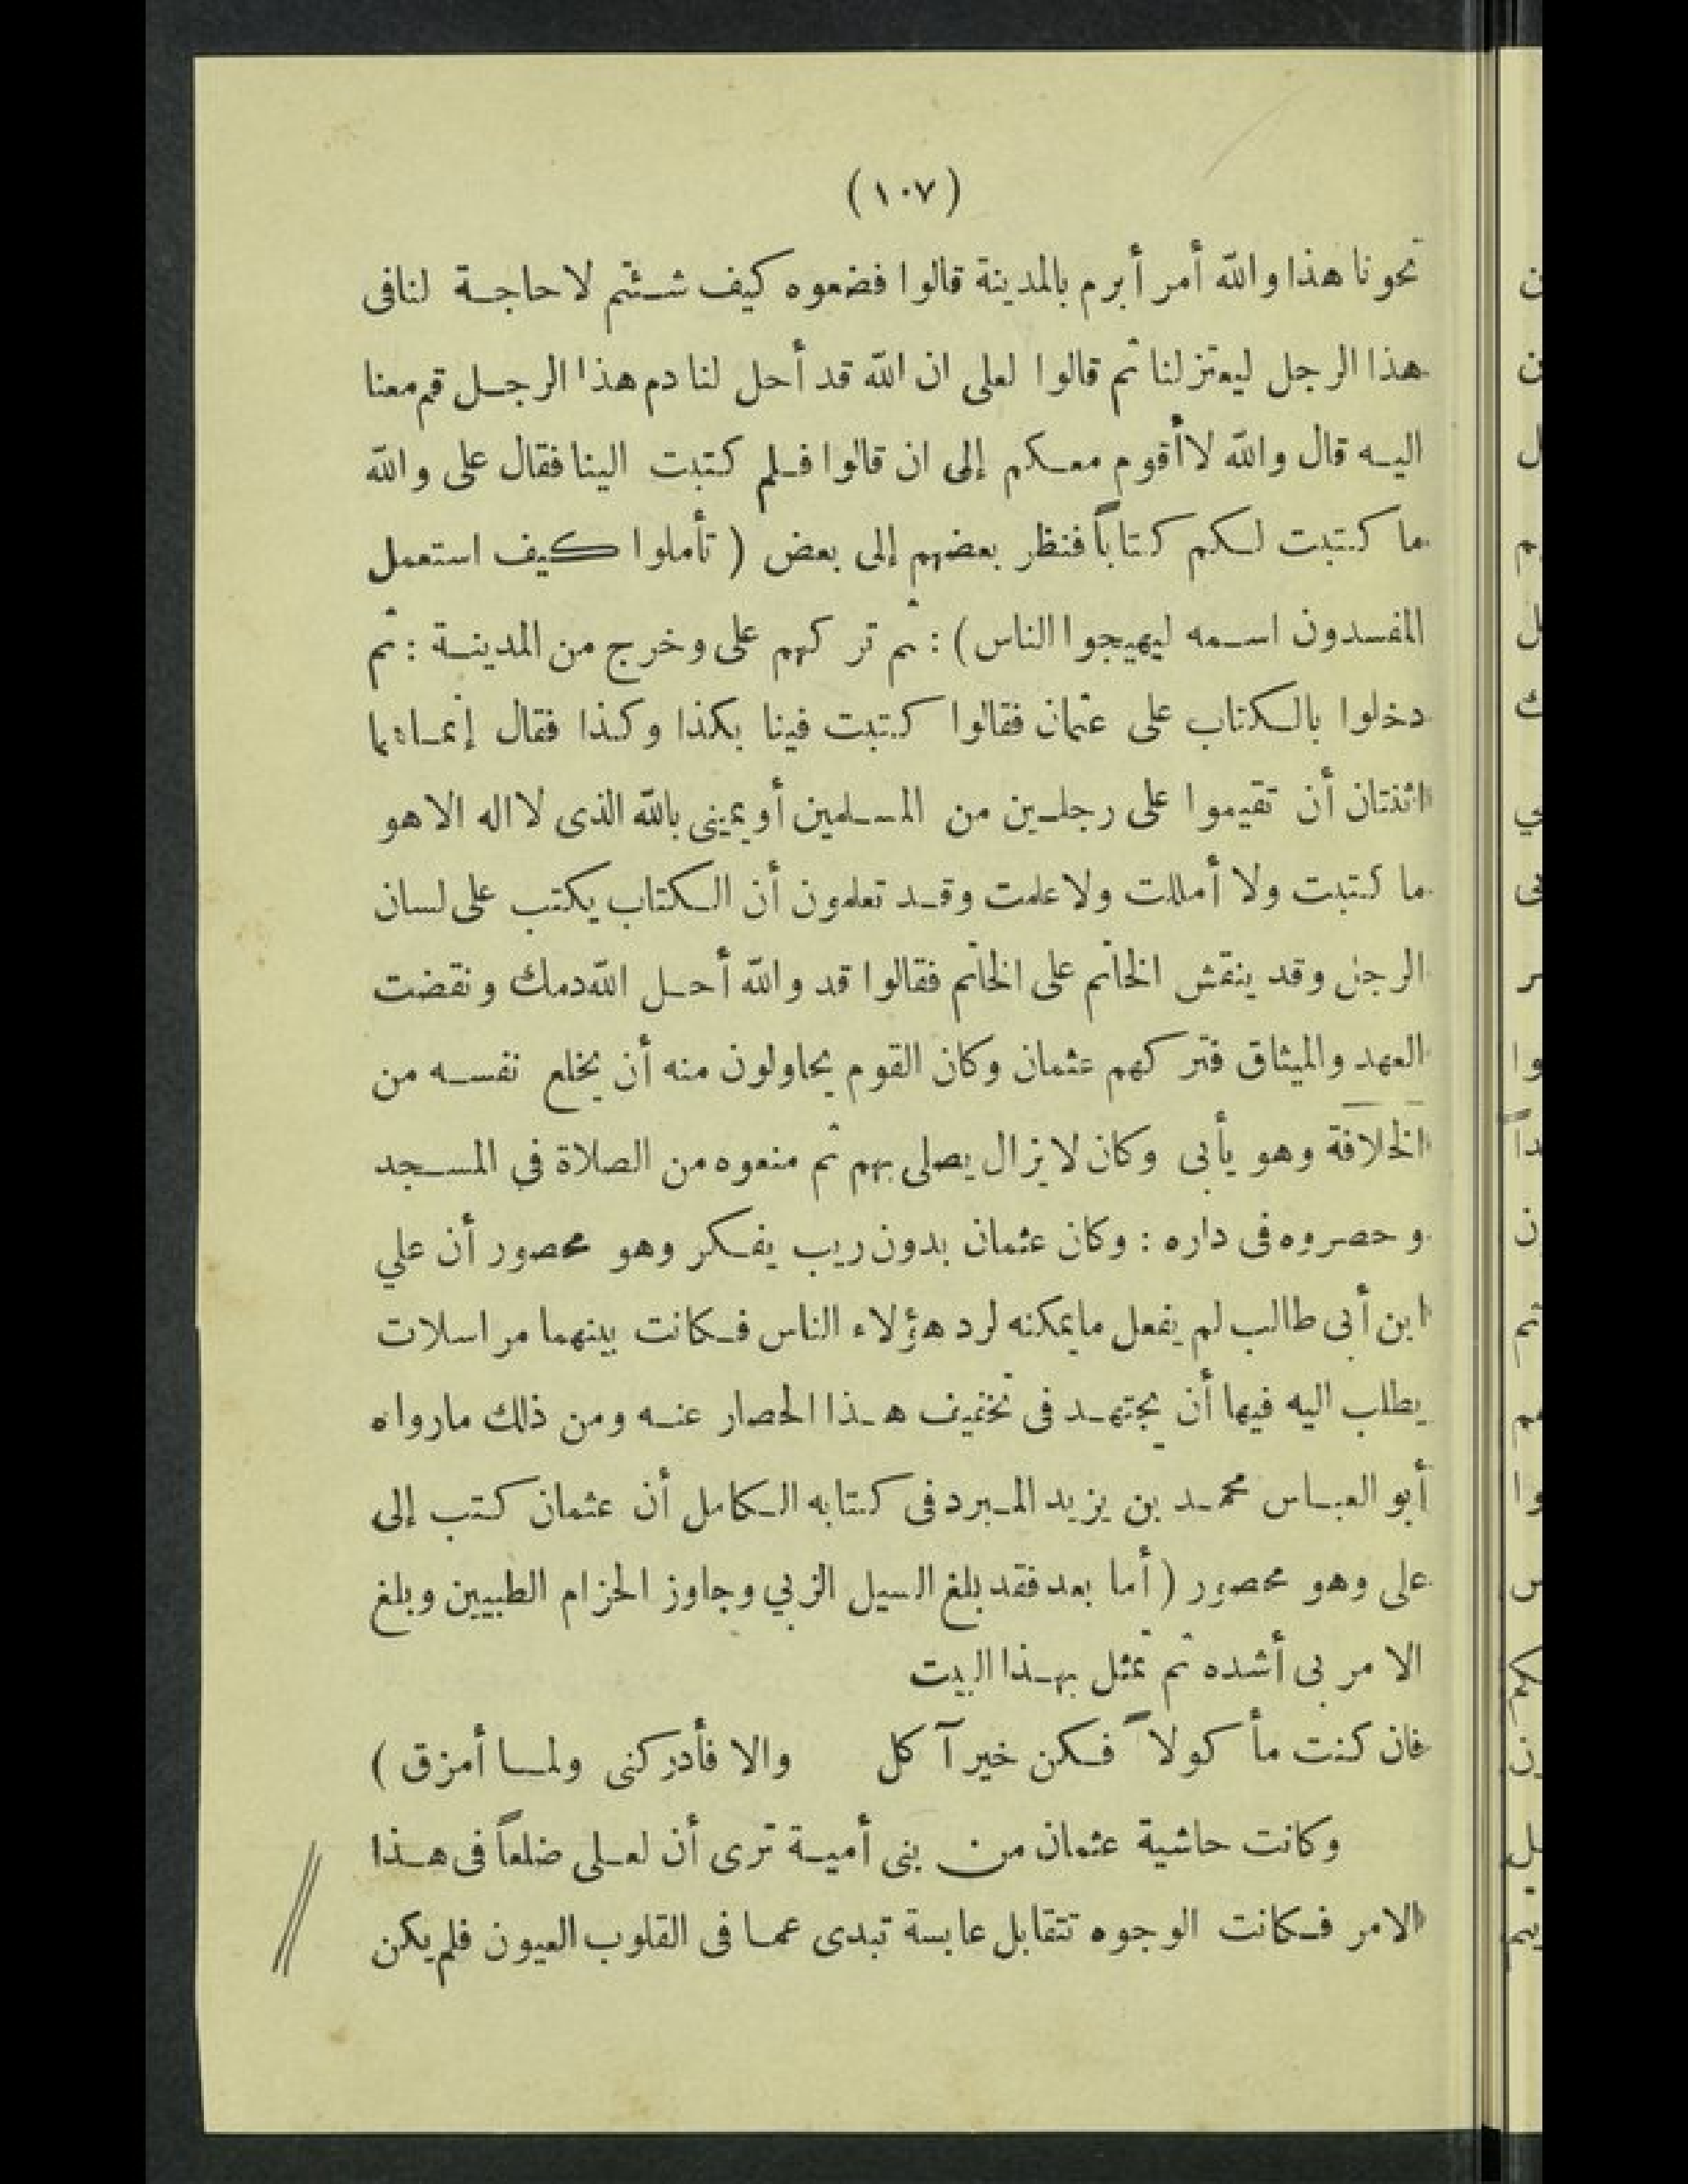 (١٠٧)
نحونا هذا والله أمر أبرم بالمدينة قالوا فضعوه كيف شئتم لا حاجة لنا فى
هذا الرجل ليعتزلنا ثم قالوا لعلى ان الله قد أحل لنا دم هذا الرجل قم معنا
اليه قال والله لا أقوم معكم إلى ان قالوا فلم كتبت الينا فقال على والله
ما كتبت لكم كتاباً فنظر بعضهم إلى بعض ( تأملوا كيف استعمل
المفسدون اسمه ليهيجوا الناس ) : ثم تركهم على وخرج من المدينة : ثم
دخلوا بالكتاب على عثمان فقالوا كتبت فينا بكذا وكذا فقال إنما هما
اثنتان أن تقيموا على رجلين من المسلمين أو يمينى بالله الذى لا اله الا هو
ما كتبت ولا أمللت ولا علمت وقد تعلمون أن الكتاب يكتب على لسان
الرجل وقد ينقش الخاتم على الخاتم فقالوا قد والله أحل الله دمك ونقضت
العهد والميثاق فتركهم عثمان وكان القوم يحاولون منه أن يخلع نفسه من
الخلافة وهو يأبى وكان لا يزال يصلى بهم ثم منعوه من الصلاة في المسجد
وحصروه فى داره : وكان عثمان بدون ريب يفكر وهو محصور أن علي
ابن أبى طالب لم يفعل ما يمكنه لرد هؤلاء الناس فكانت بينهما مراسلات
يطلب اليه فيها أن يجتهد فى تخفيف هذا الحصار عنه ومن ذلك مارواه
أبو العباس محمد بن يزيد المبرد فى كتابه الكامل أن عثمان كتب إلى
على وهو محصور ( أما بعد فقد بلغ السيل الزبي وجاوز الحزام الطبيين وبلغ
الامر بى أشده ثم تمثل بهذا البيت
فان كنت مأكولاً فكن خير آكل والا فأدركنى ولما أمزق )
وكانت حاشية عثمان من بنى أمية ترى أن لعلى ضلعاً فى هذا
الامر فكانت الوجوه تتقابل عابسة تبدى عما فى القلوب العيون فلم يكن